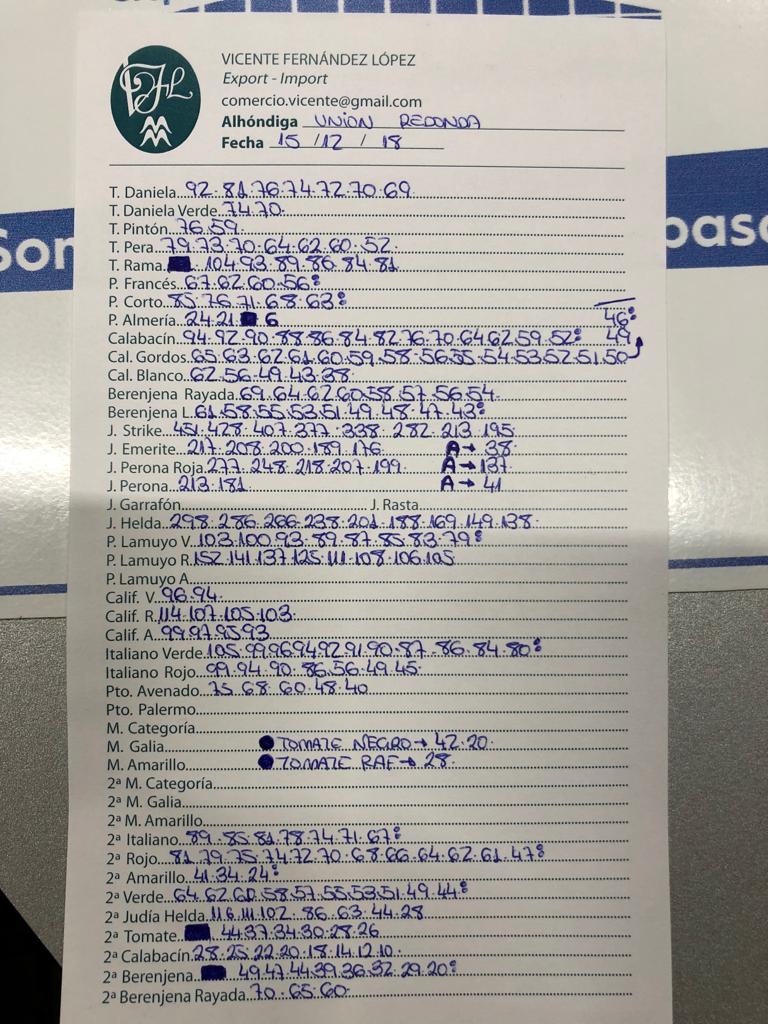 VICENTE FERNÁNDEZ LÓPEZ
Export - Import
comercio.vicente@gmail.com
Alhóndiga UNION REDONDA
Fecha 15 / 12 / 18
T. Daniela 92.81.76.74.72.70.69
T. Daniela Verde 74.70
T. Pintón 76.59
T. Pera 79.73.70.64.62.60.52
T. Rama 104.93.89.86.84.81
P. Francés 67.62.60.56
P. Corto 85.76.71.68.63
P. Almería 24.21 6 46
Calabacín 94.92.90.88.86.84.82.76.70.64.62.59.52 49
Cal. Gordos 65.63.62.61.60.59.58.56.55.54.53.52.51.50
Cal. Blanco 62.56.49.43.38
Berenjena Rayada 69.64.62.60.58.57.56.54
Berenjena L. 61.58.55.53.51.49.48.47.43
J. Strike 451.428.407.377.338.282.213.195
J. Emerite 217.208.200.189.176 A→38
J. Perona Roja 277.248.218.207.199 A→137
J. Perona 213.181 A→41
J. Garrafón J. Rasta
J. Helda 298.286.266.238.201.188.169.149.138
P. Lamuyo V. 103.100.93.89.87.85.83.79
P. Lamuyo R. 152.141.137.125.111.108.106.105
P. Lamuyo A
Calif. V. 96.94
Calif. R. 114.107.105.103
Calif. A. 99.97.95.93
Italiano Verde 105.99.96.94.92.91.90.87.86.84.80
Italiano Rojo 99.94.90.86.56.49.45
Pto. Avenado 75.68.60.48.40
Pto. Palermo
M. Categoría
M. Galia TOMATE NEGRO→42.20
M. Amarillo TOMATE RAF→28
2ª M. Categoría
2ª M. Galia
2ª M. Amarillo
2ª Italiano 89.85.81.78.74.71.67
2ª Rojo 81.79.75.74.72.70.68.66.64.62.61.47
2ª Amarillo 41.34.24
2ª Verde 64.62.60.58.57.55.53.51.49.44
2ª Judía Helda 116.111.102.86.63.44.28
2ª Tomate 44.37.34.30.28.26
2ª Calabacín 28.25.22.20.18.14.12.10
2ª Berenjena 49.47.44.39.36.32.29.20
2ª Berenjena Rayada 70.65.60